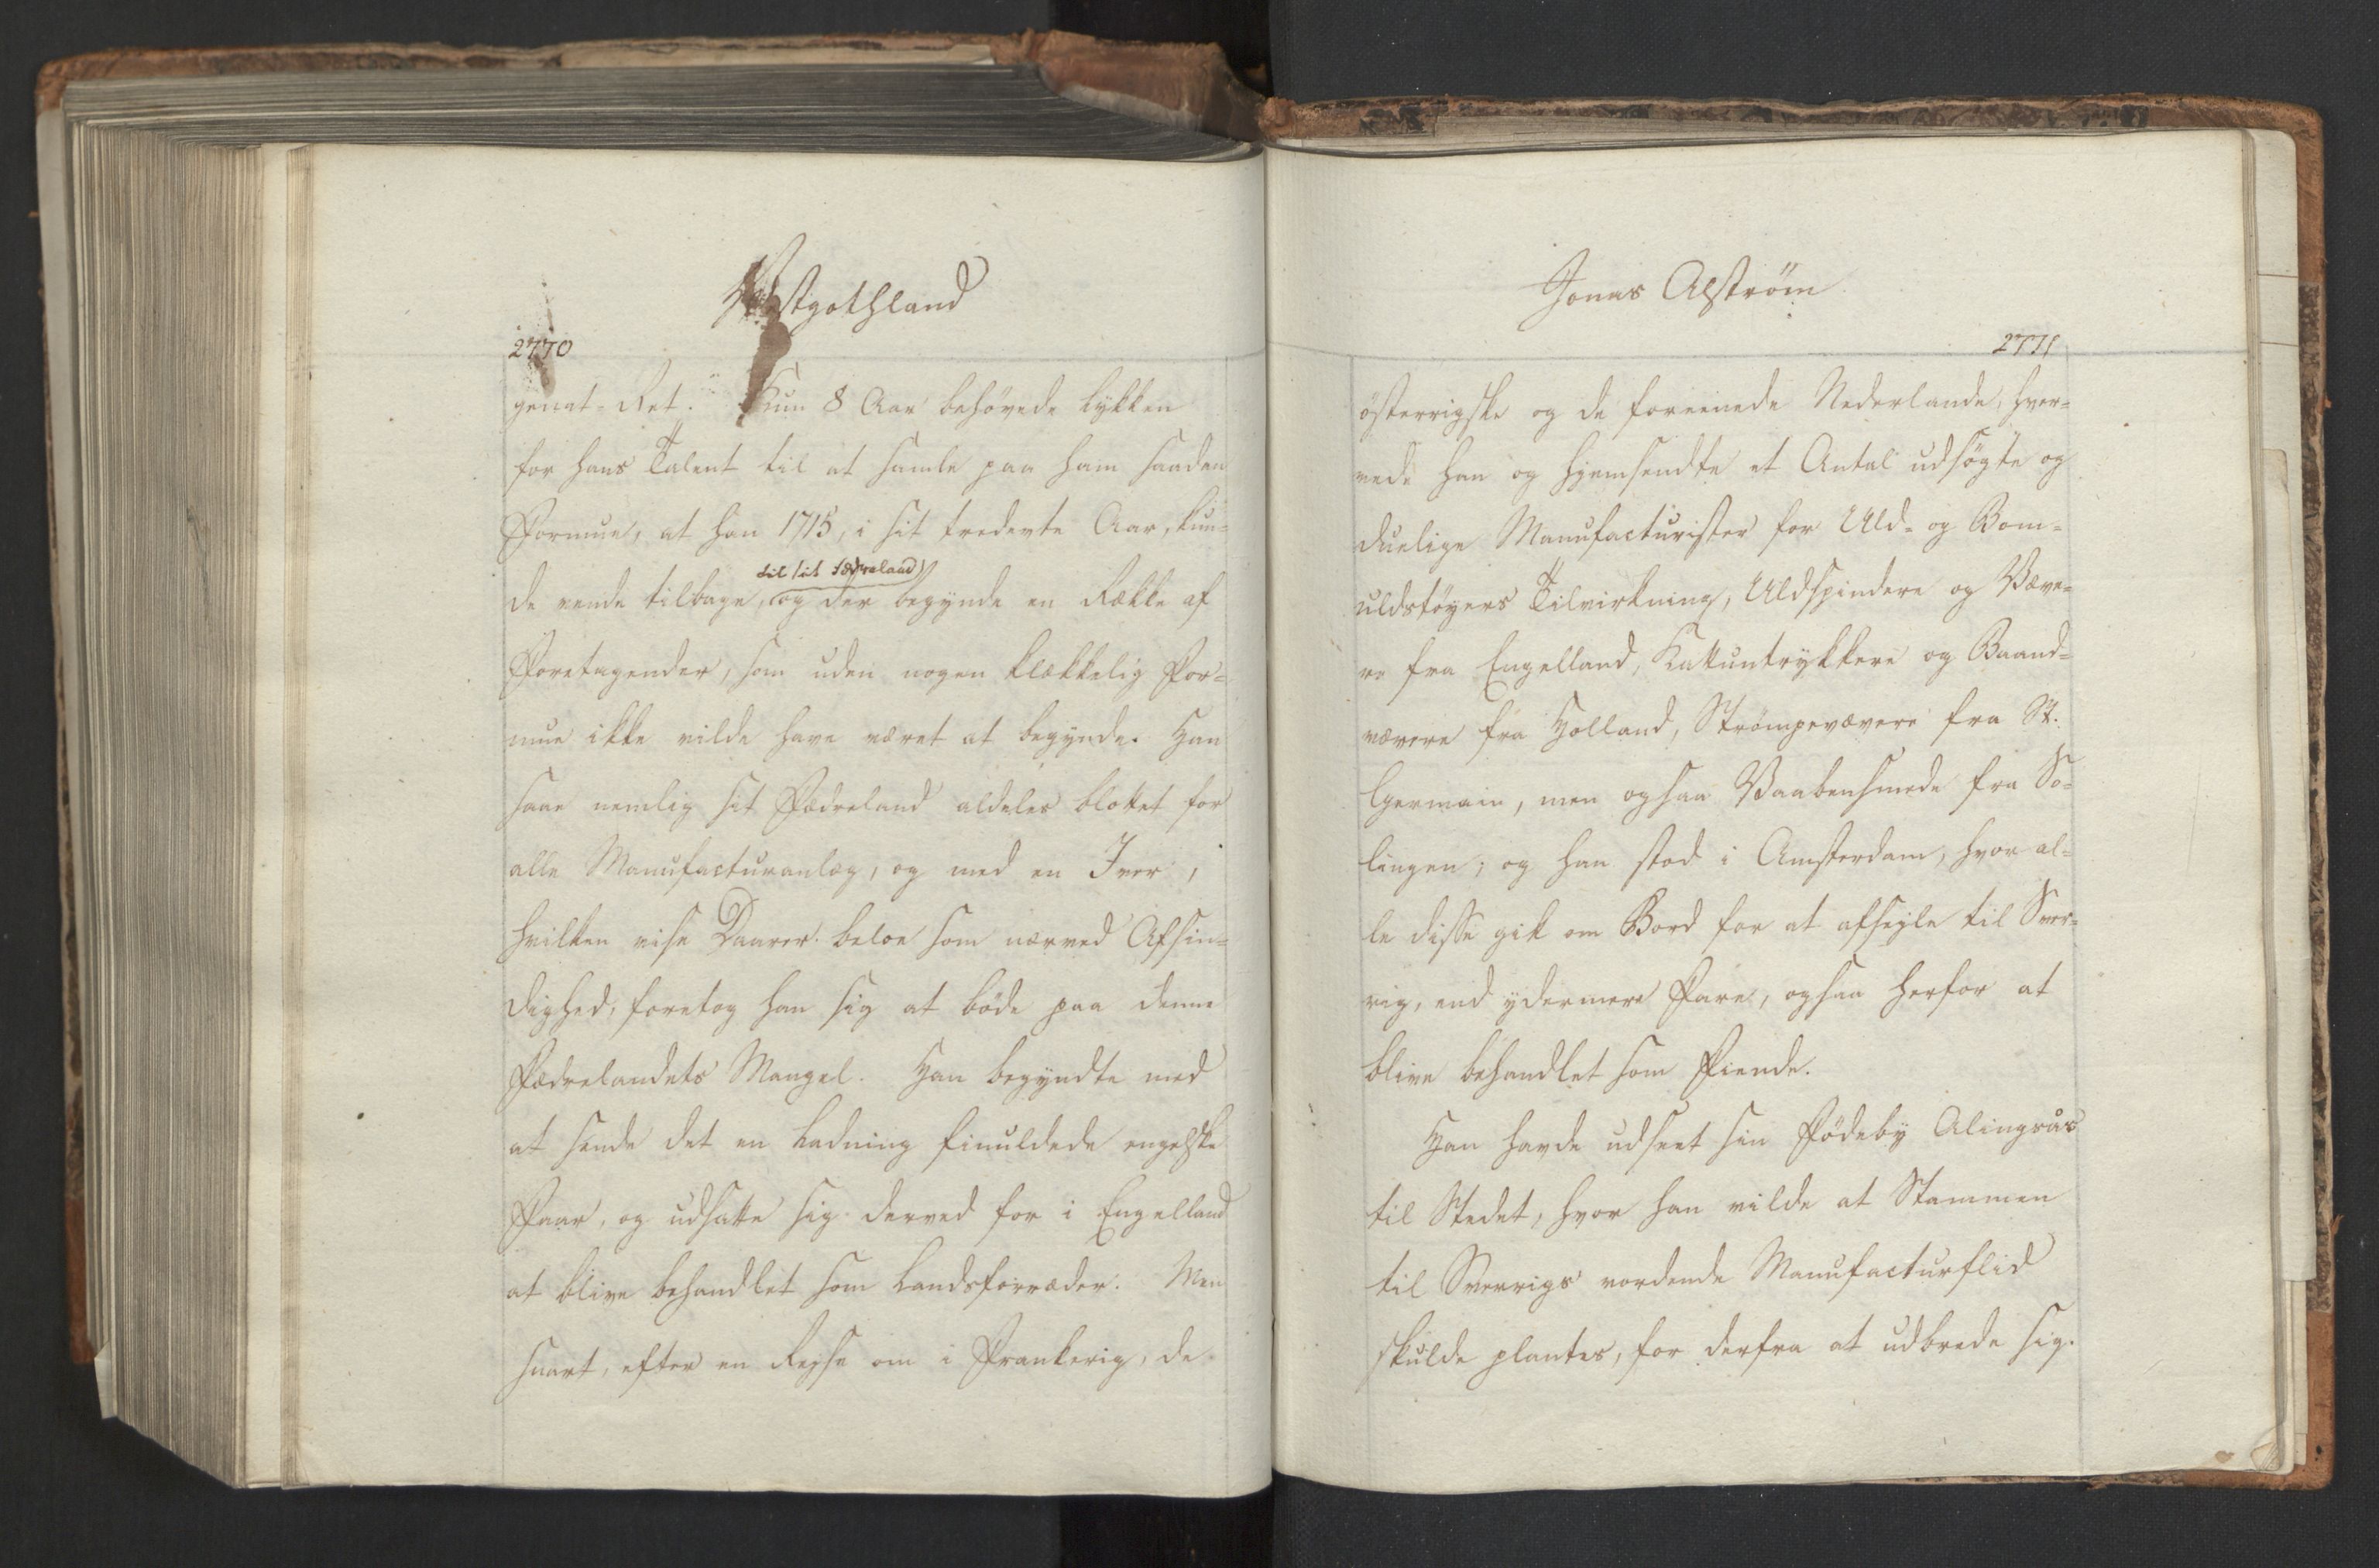 Westgothland
2770
genat-Ret. Kun 8 Aar behøvede Lykken
for hans Talent til at samle paa ham saaden
Formue, at han 1715, i sit tredevte Aar, kun-
til sit Fædreland
de vende tilbage, og der begynde en Række af
Foretagender, som uden nogen klækkelig For-
mue ikke vilde have været at begynde. Han
saae nemlig sit Fædreland aldeles blottet for
alle Manufacturanlæg, og med en Iver,
hvilken vise Daarer beloe som nærved Afsin-
dighed, foretog han sig at bøde paa denne
Fædrelandets Mangel. Han begyndte med
at sende det en Ladning finuldede engelske
Faar, og udsatte sig derved for i Engelland
at blive behandlet som Landsforræder. Men
snart, efter en Rejse om i Frankerig, de
Jonas Alstrøm
2771
österrigske og de foreenede Nederlande, hver-
vede han og hjemsendte et Antal udsøgte og
duelige Manufacturister for Uld- og Bom-
uldstøyers Tilvirkning, Uldspindere og Væve-
re fra Engelland, Kattuntrykkere og Baand-
vævere fra Holland, Strømpevævere fra St.
Germain, men ogsaa Vaabensmede fra So-
lingen; og han stod i Amsterdam, hvor al-
le disse gik om Bord for at afsejle til Sver-
rig, end ydermere Fare, ogsaa herfor at
blive behandlet som Fiende.
Han havde udseet sin Fødeby Alingsås
til Stedet, hvor han vilde at Stammen
til Sverrigs vordende Manufacturflid
skulde plantes, for derfra at udbrede sig.